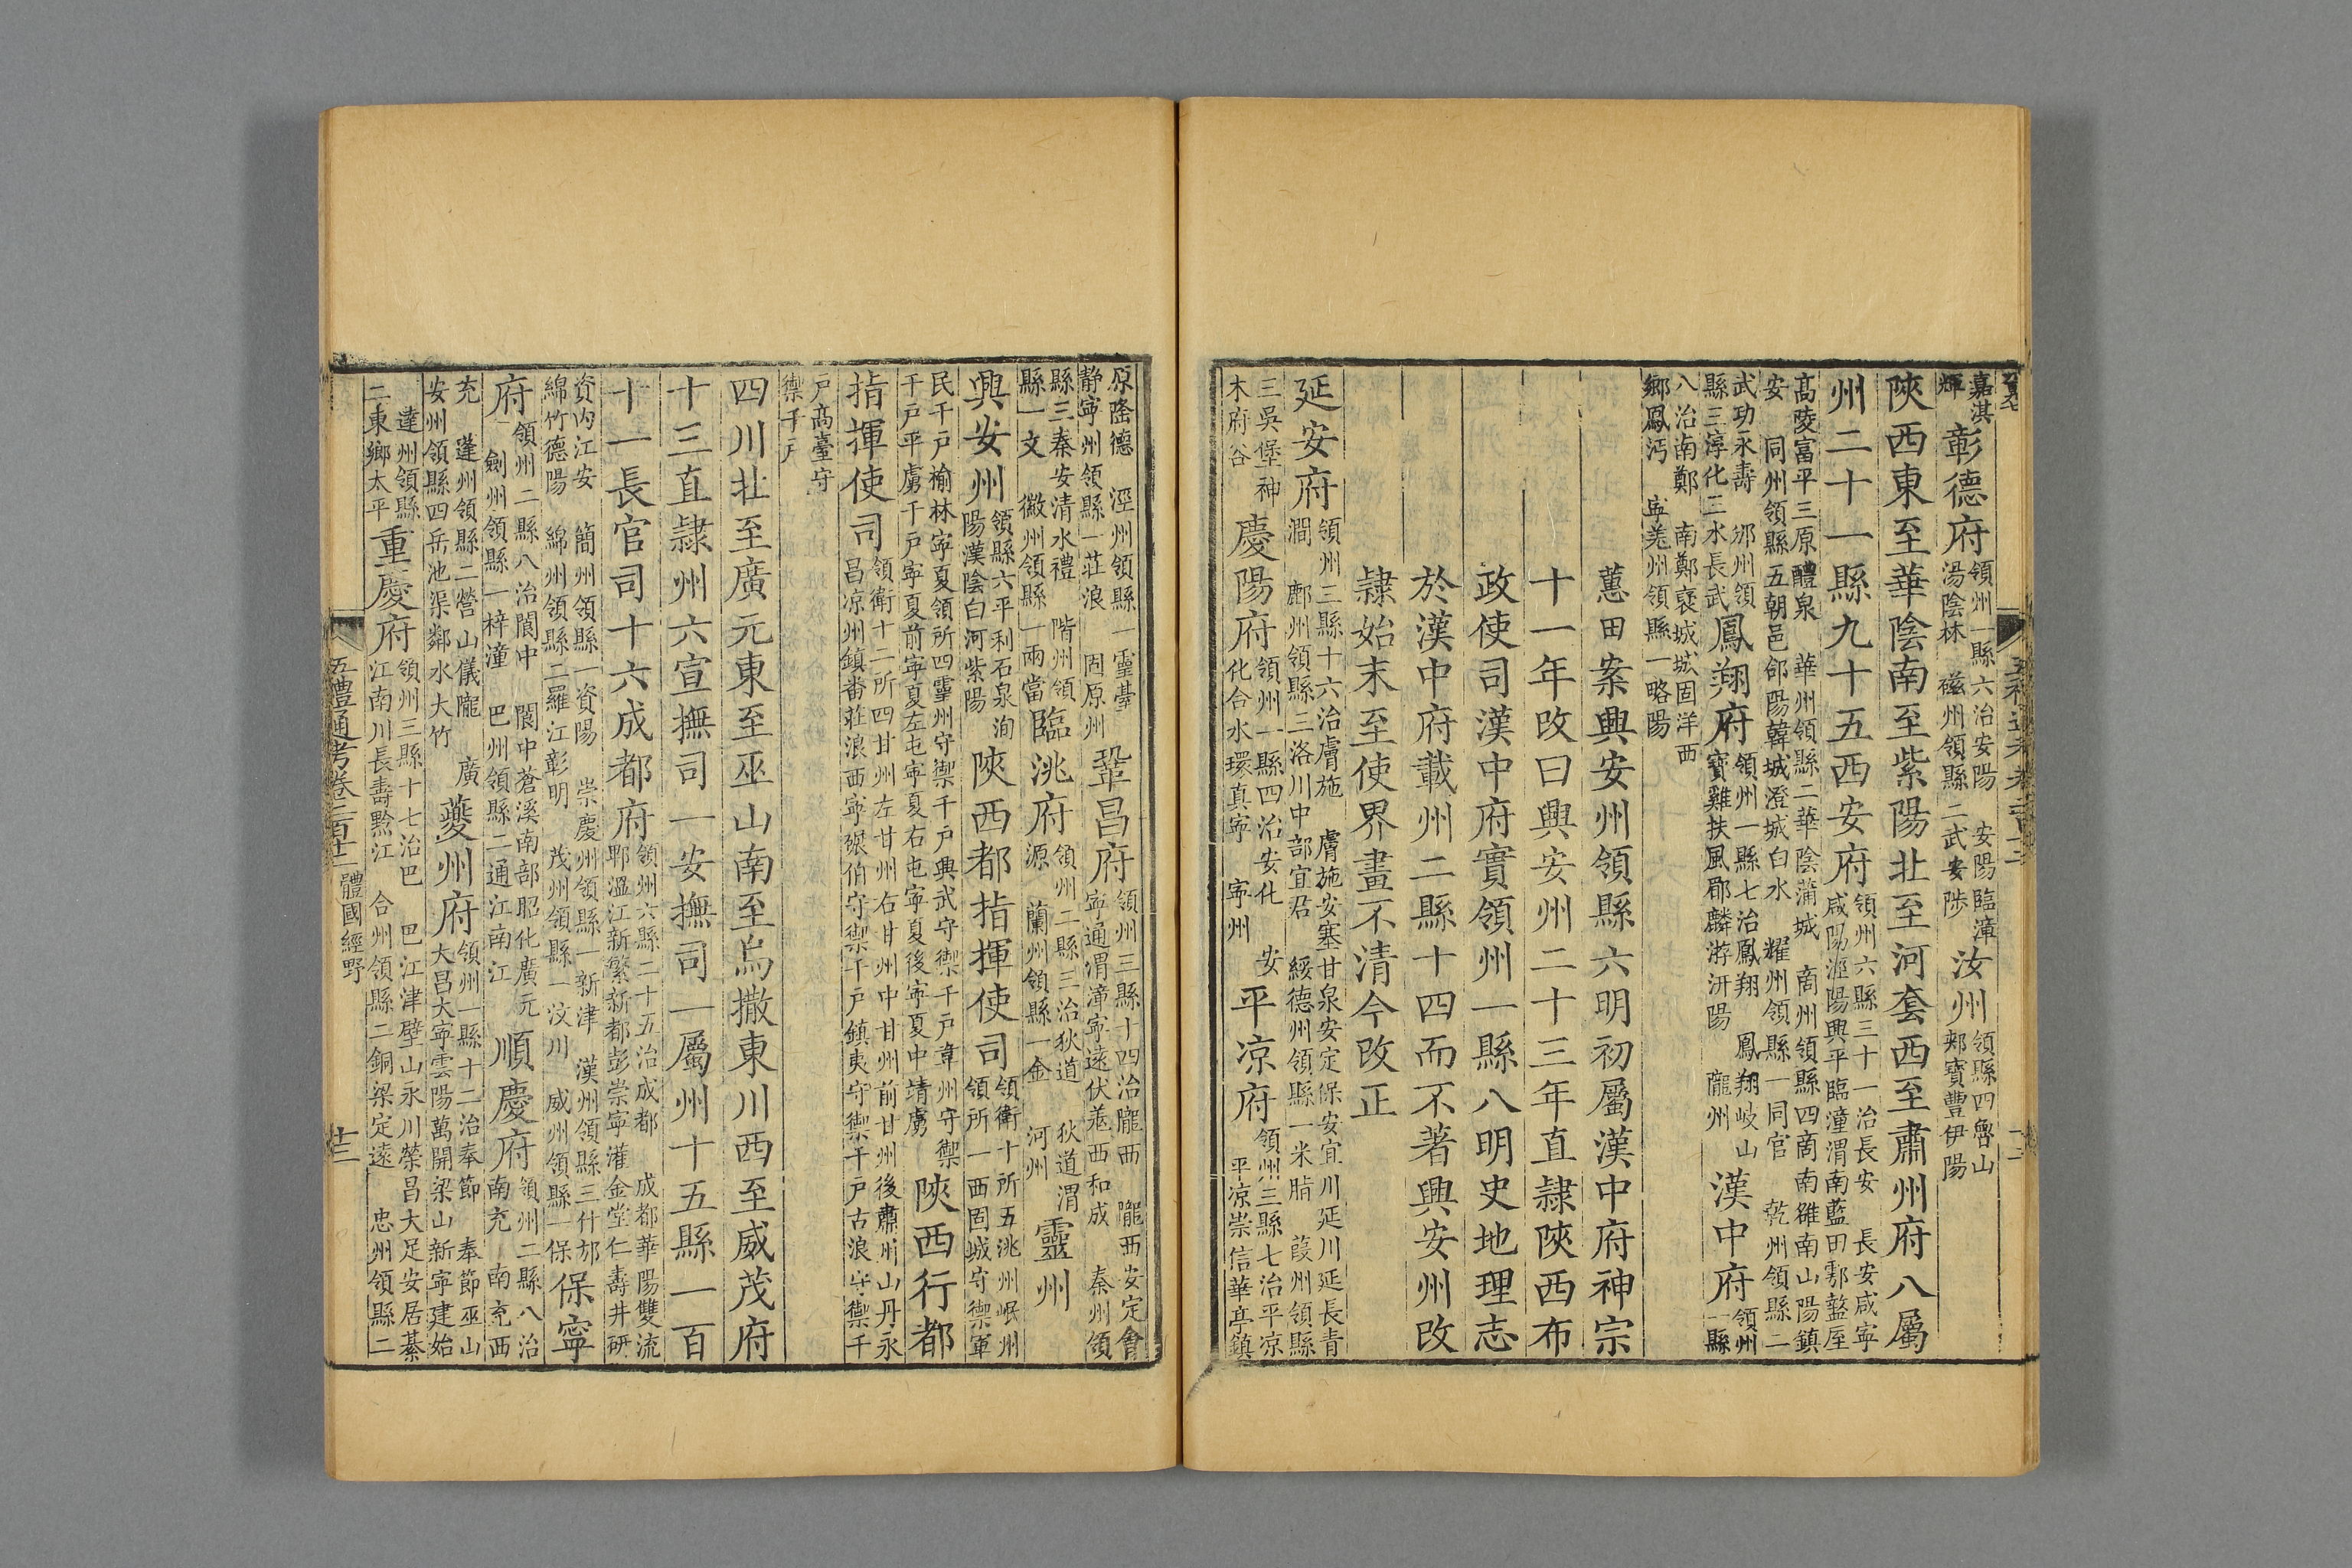 嘉淇輝彰德府領州一縣六治安陽 安陽臨漳湯陰林 磁州領縣二武安涉汝州領縣四魯山郟寶豐伊陽
陝西東至華陰南至紫陽北至河套西至肅州府八屬
州二十一縣九十五西安府領州六縣三十一治長安 長安咸寧咸陽涇陽興平臨潼渭南藍田鄠盩厔
高陵富平三原醴泉 華州領縣二華陰蒲城 商州領縣四商南雒南山陽鎮安 同州領縣五朝邑郃陽韓城澄城白水 耀州領縣一同官 乾州領縣二
武功永壽 邠州領縣三淳化三水長武鳳翔府領州一縣七治鳳翔 鳳翔岐山寶雞扶風郿麟游汧陽 隴州漢中府領州一縣
八治南鄭 南鄭襃城城固洋西鄉鳳沔 寧羌州領縣一略陽
蕙田案興安州領縣六明初屬漢中府神宗
十一年改曰興安州二十三年直隸陝西布
政使司漢中府實領州一縣八明史地理志
於漢中府載州二縣十四而不著興安州改
隸始末至使界畫不清今改正
延安府領州三縣十六治膚施 膚施安塞甘泉安定保安宜川延川延長青澗 鄜州領縣三洛川中部宜君 綏德州領縣一米脂 葭州領縣
三吳堡神木府谷慶陽府領州一縣四治安化 安化合水環真寧 寧州平凉府領州三縣七治平凉 平凉崇信華亭鎮
原隆德 涇州領縣一靈臺靜寧州領縣一莊浪 固原州鞏昌府領州三縣十四治隴西 隴西安定會寧通渭漳寧遠伏羌西和成 秦州領
縣三秦安清水禮 階州領縣一文 徽州領縣一兩當臨洮府領州二縣三治狄道 狄道渭源 蘭州領縣一金 河州靈州
興安州領縣六平利石泉洵陽漢陰白河紫陽陝西都指揮使司領衛十所五洮州岷州領所一西固城守禦軍
民千戶榆林寧夏領所四靈州守禦千戶興武守禦千戶韋州守禦千戶平虜千戶寧夏前寧夏左屯寧夏右屯寧夏後寧夏中靖虜陝西行都
指揮使司領衛十二所四甘州左甘州右甘州中甘州前甘州後肅州山丹永昌凉州鎮番莊浪西寧碾伯守禦千戶鎮夷守禦千戶古浪守禦千
戶高臺守禦千戶
四川北至廣元東至巫山南至烏撒東川西至威茂府
十三直隸州六宣撫司一安撫司一屬州十五縣一百
十一長官司十六成都府領州六縣二十五治成都 成都華陽雙流郫溫江新繁新都彭崇寧灌金堂仁壽井研
資內江安 簡州領縣一資陽 崇慶州領縣一新津 漢州領縣三什邡綿竹德陽 綿州領縣二羅江彰明 茂州領縣一汶川 威州領縣一保保寧
府領州二縣八治閬中 閬中蒼溪南部昭化廣元 劍州領縣一梓潼 巴州領縣二通江南江順慶府領州二縣八治南充 南充西
充 蓬州領縣二營山儀隴 廣安州領縣四岳池渠鄰水大竹夔州府領州一縣十二治奉節 奉節巫山大昌大寧雲陽萬開梁山新寧建始
達州領縣二東鄉太平重慶府領州三縣十七治巴 巴江津璧山永川榮昌大足安居綦江南川長壽黔江 合州領縣二銅梁定遠 忠州領縣二
五禮通考卷二百十二 體國經野
十三